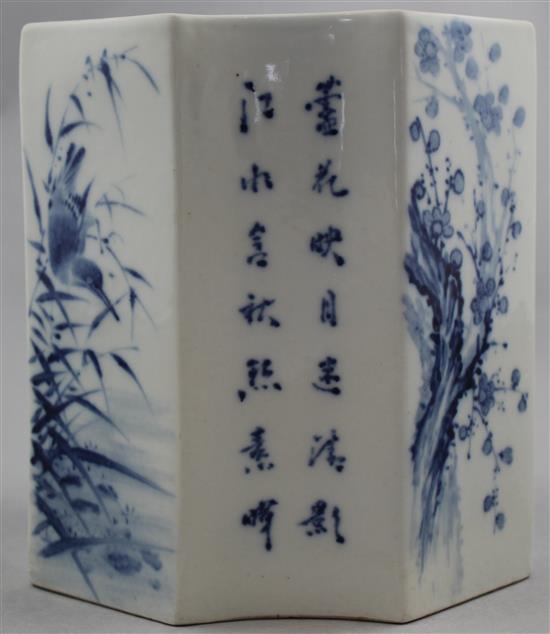 蘆花映月迷清影
江水含秋點素暉